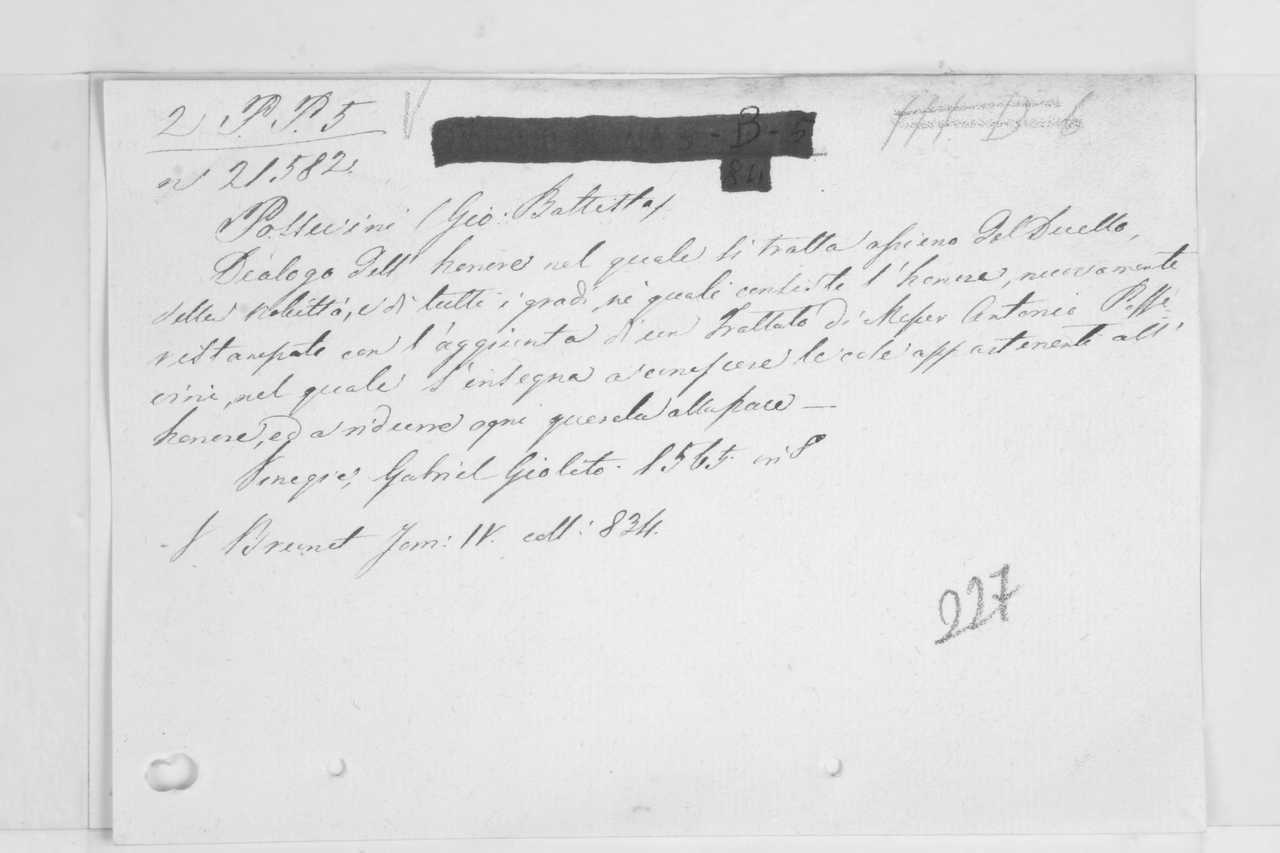 2 P.P.5
B - 5
84
n 21582.
Possevini (Gio: Battista)
Dialogo dell' honore nel quale si tratta appieno del Duello,
della nobiltà, e di tutti i gradi, ne quali consiste l'honore, nuovamente
ristampato con l'aggiunta di un Trattato di Messer Antonio Posse-
vini, nel quale s'insegna a conoscere le cose appartenenti all'
honore, ed a ridurre ogni querela alla pace —
Venegia, Gabriel Giolito. 1565. in 8°
V. Brunet Tom: IV. coll: 834.
227